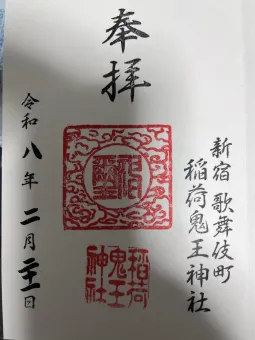 奉拝
新宿 歌舞伎町
稲荷鬼王神社
稲荷
鬼王
神社
令和八年二月日